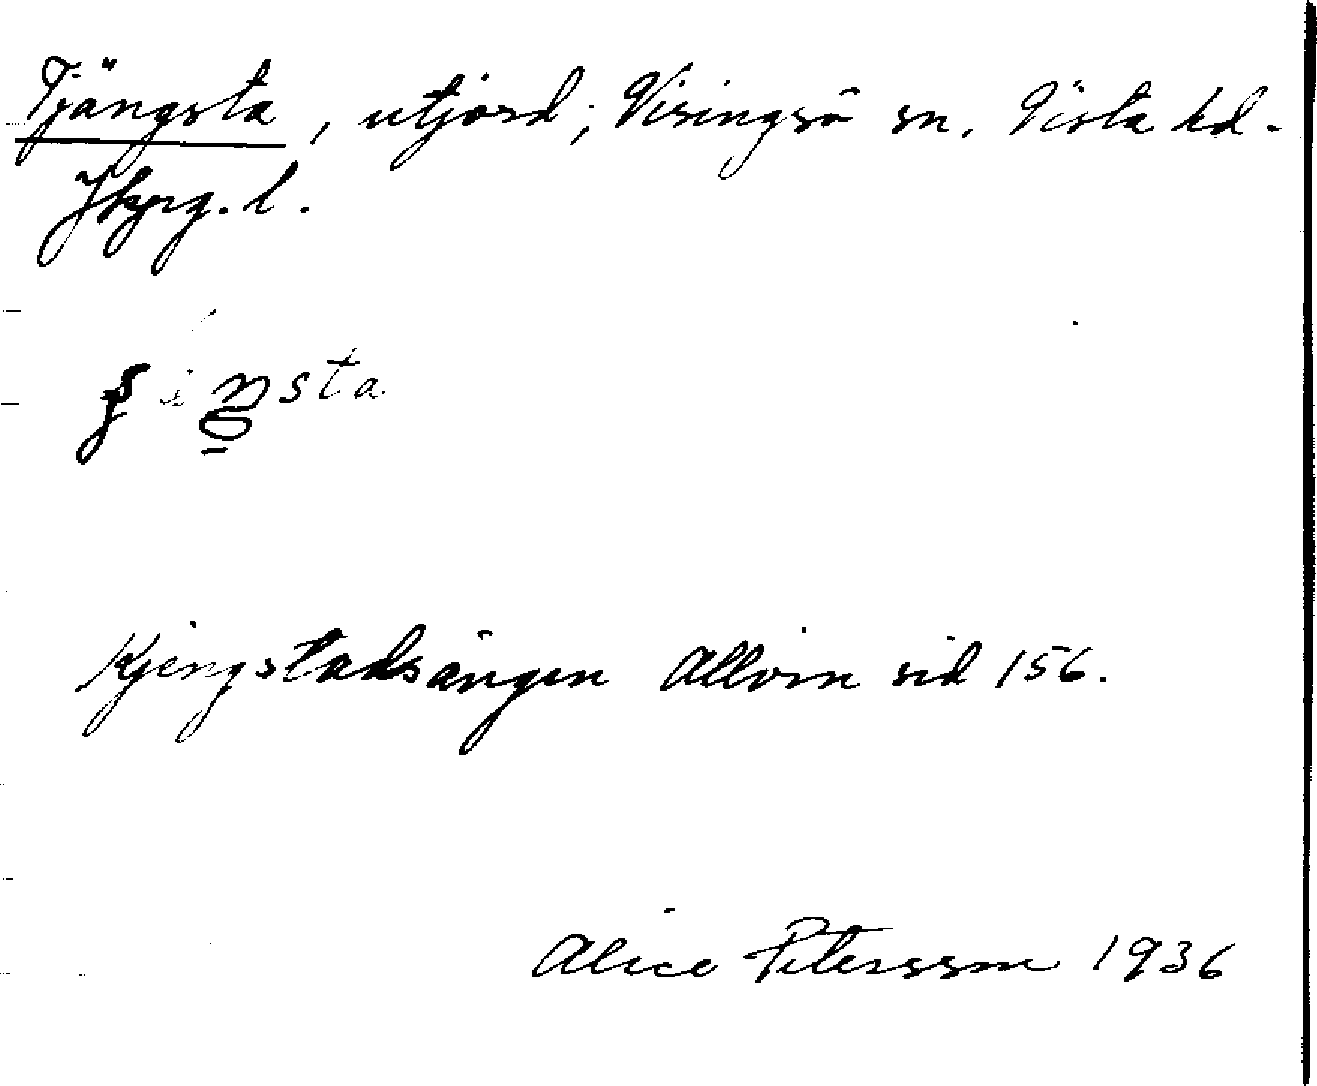 Tjängsta, utjord; Visingsö sn. Vista hd.
Jkpg. l.
Kjengstadsängen Allvin sid 156.
Alice Petersson 1936